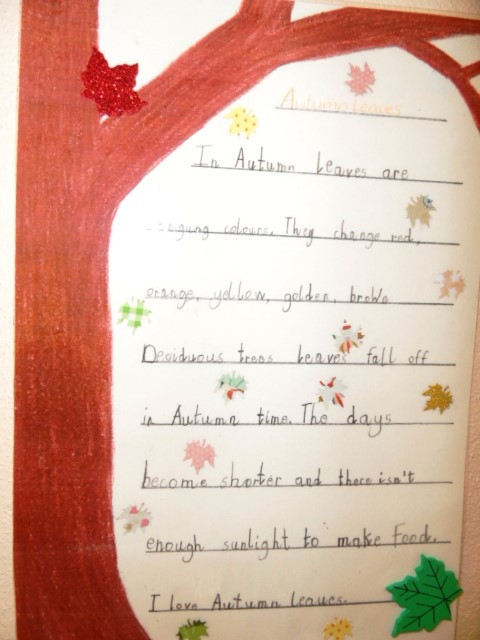 Autumn Leaves
In Autumn Leaves are
colours. They change red,
orange, yellow, golden, brown
Deciduous trees Leaves fall off
in Autumn time. The days
become shorter and there isn't
enough sunlight to make Food.
I love Autumn leaves.